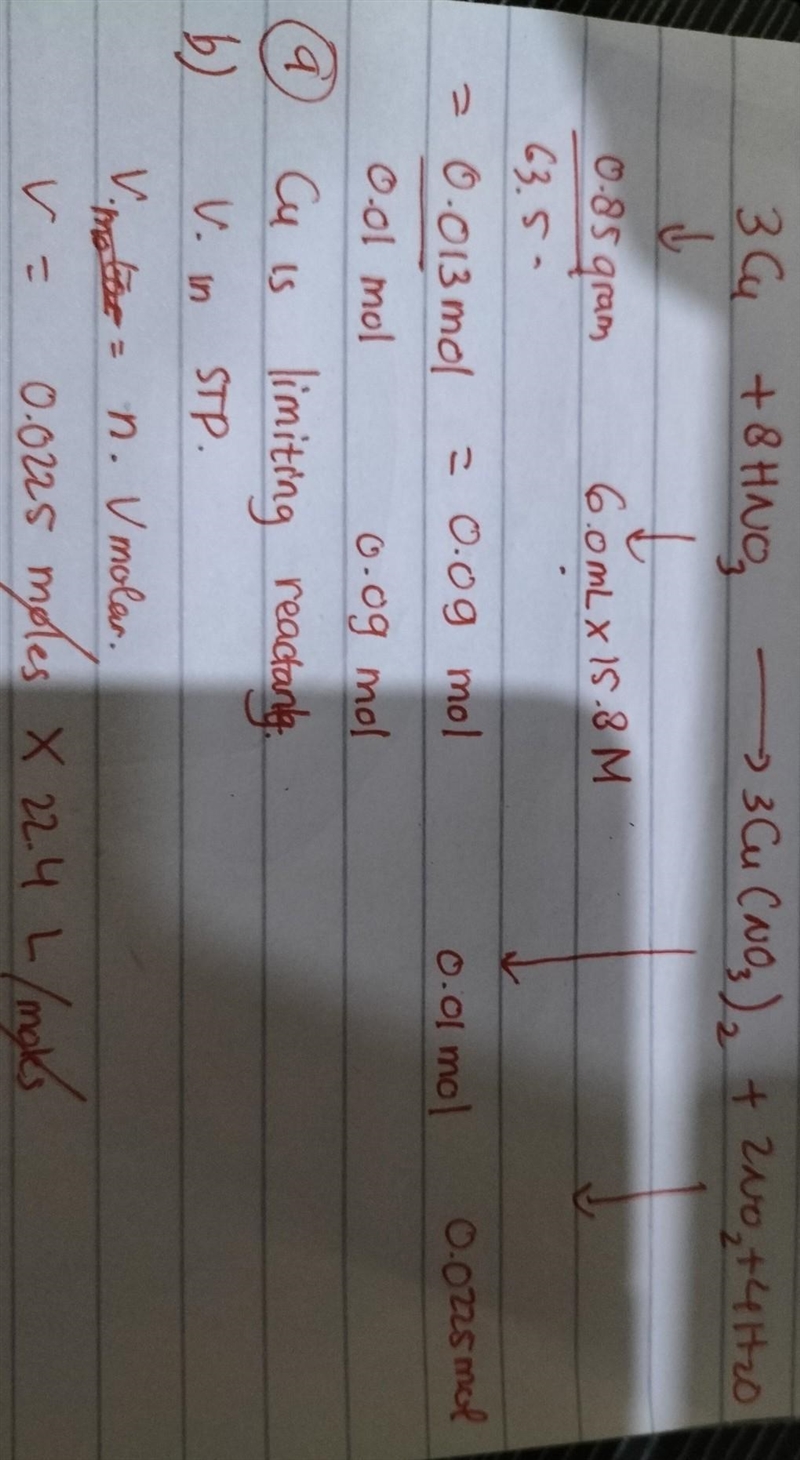 3Cu + 8HNO3 → 3Cu(NO3)2 + 2NO2 + 4H2O
↓ ↓
0.85 gram 6.0mL x 15.8 M
63.5
= 0.013 mol = 0.09 mol 0.01 mol 0.0225 mol
0.01 mol 0.09 mol
(a) Cu is limiting reactant.
b) V. in STP.
V. = n. V molar.
V = 0.0225 moles X 22.4 L/moles